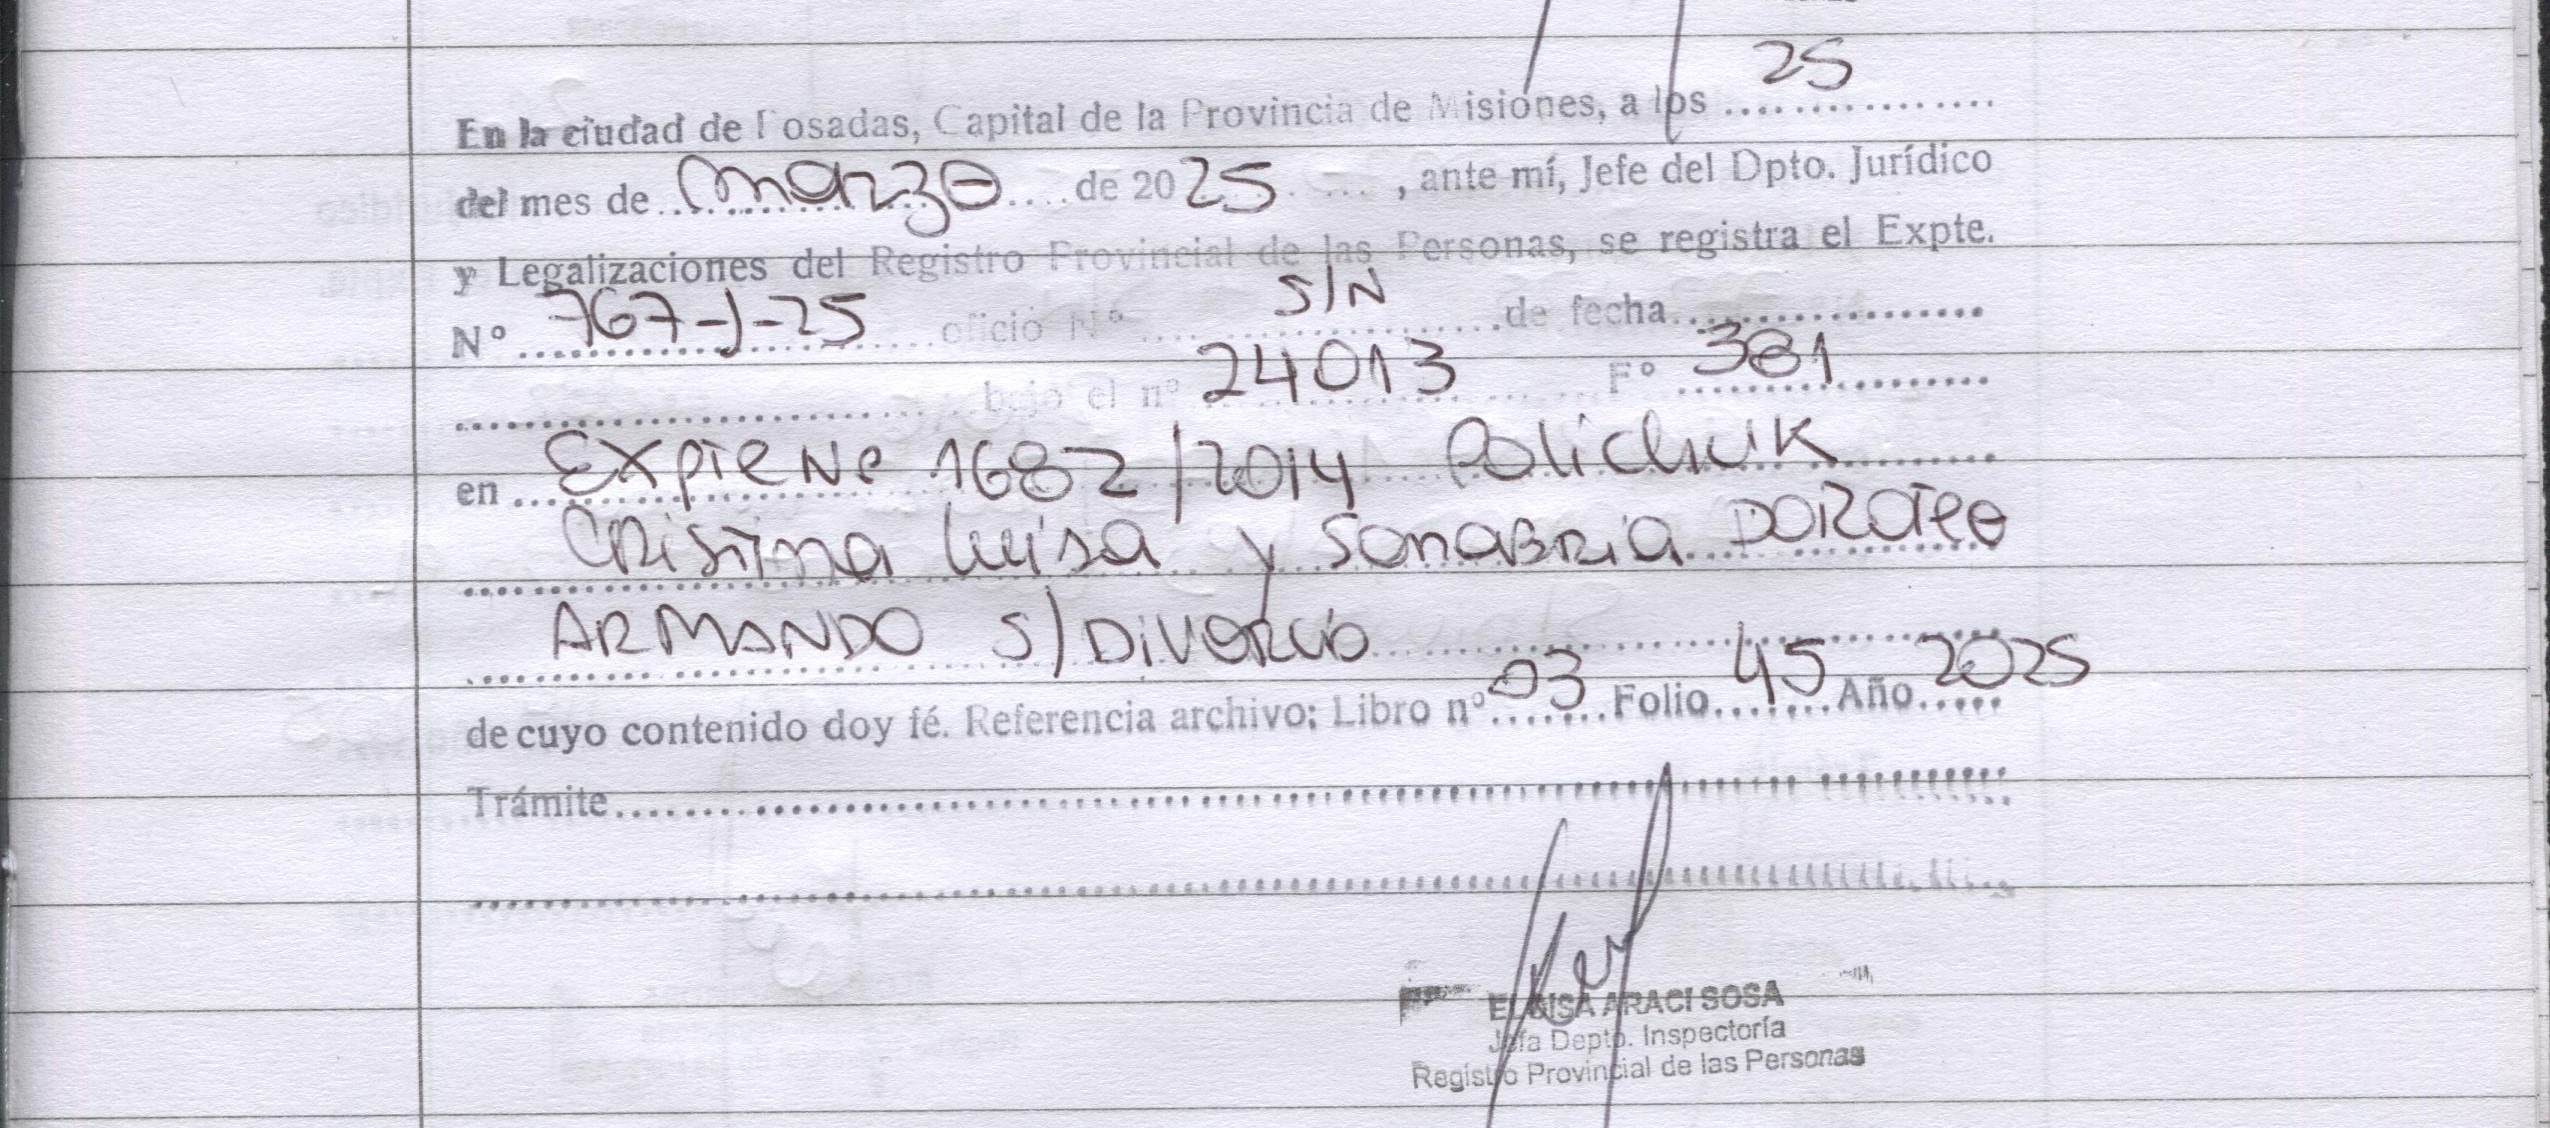 25
En la ciudad de Posadas, Capital de la Provincia de Misiones, a los ................
del mes de marzo de 2025, ante mí, Jefe del Dpto. Jurídico
y Legalizaciones del Registro Provincial de las Personas, se registra el Expte.
N° 767-J-25 oficio N° S/N de fecha................
................ bajo el n° 24013 F° 381
en Expte Nº 1682/2014 Polichuk
Cristina Luisa y Sanabria Doroteo
ARMANDO S/ Divorcio
de cuyo contenido doy fé. Referencia archivo: Libro n° 03 Folio 45 Año 2025
Trámite................
ELOISA ARACI SOSA
Jefa Depto. Inspectoría
Registro Provincial de las Personas